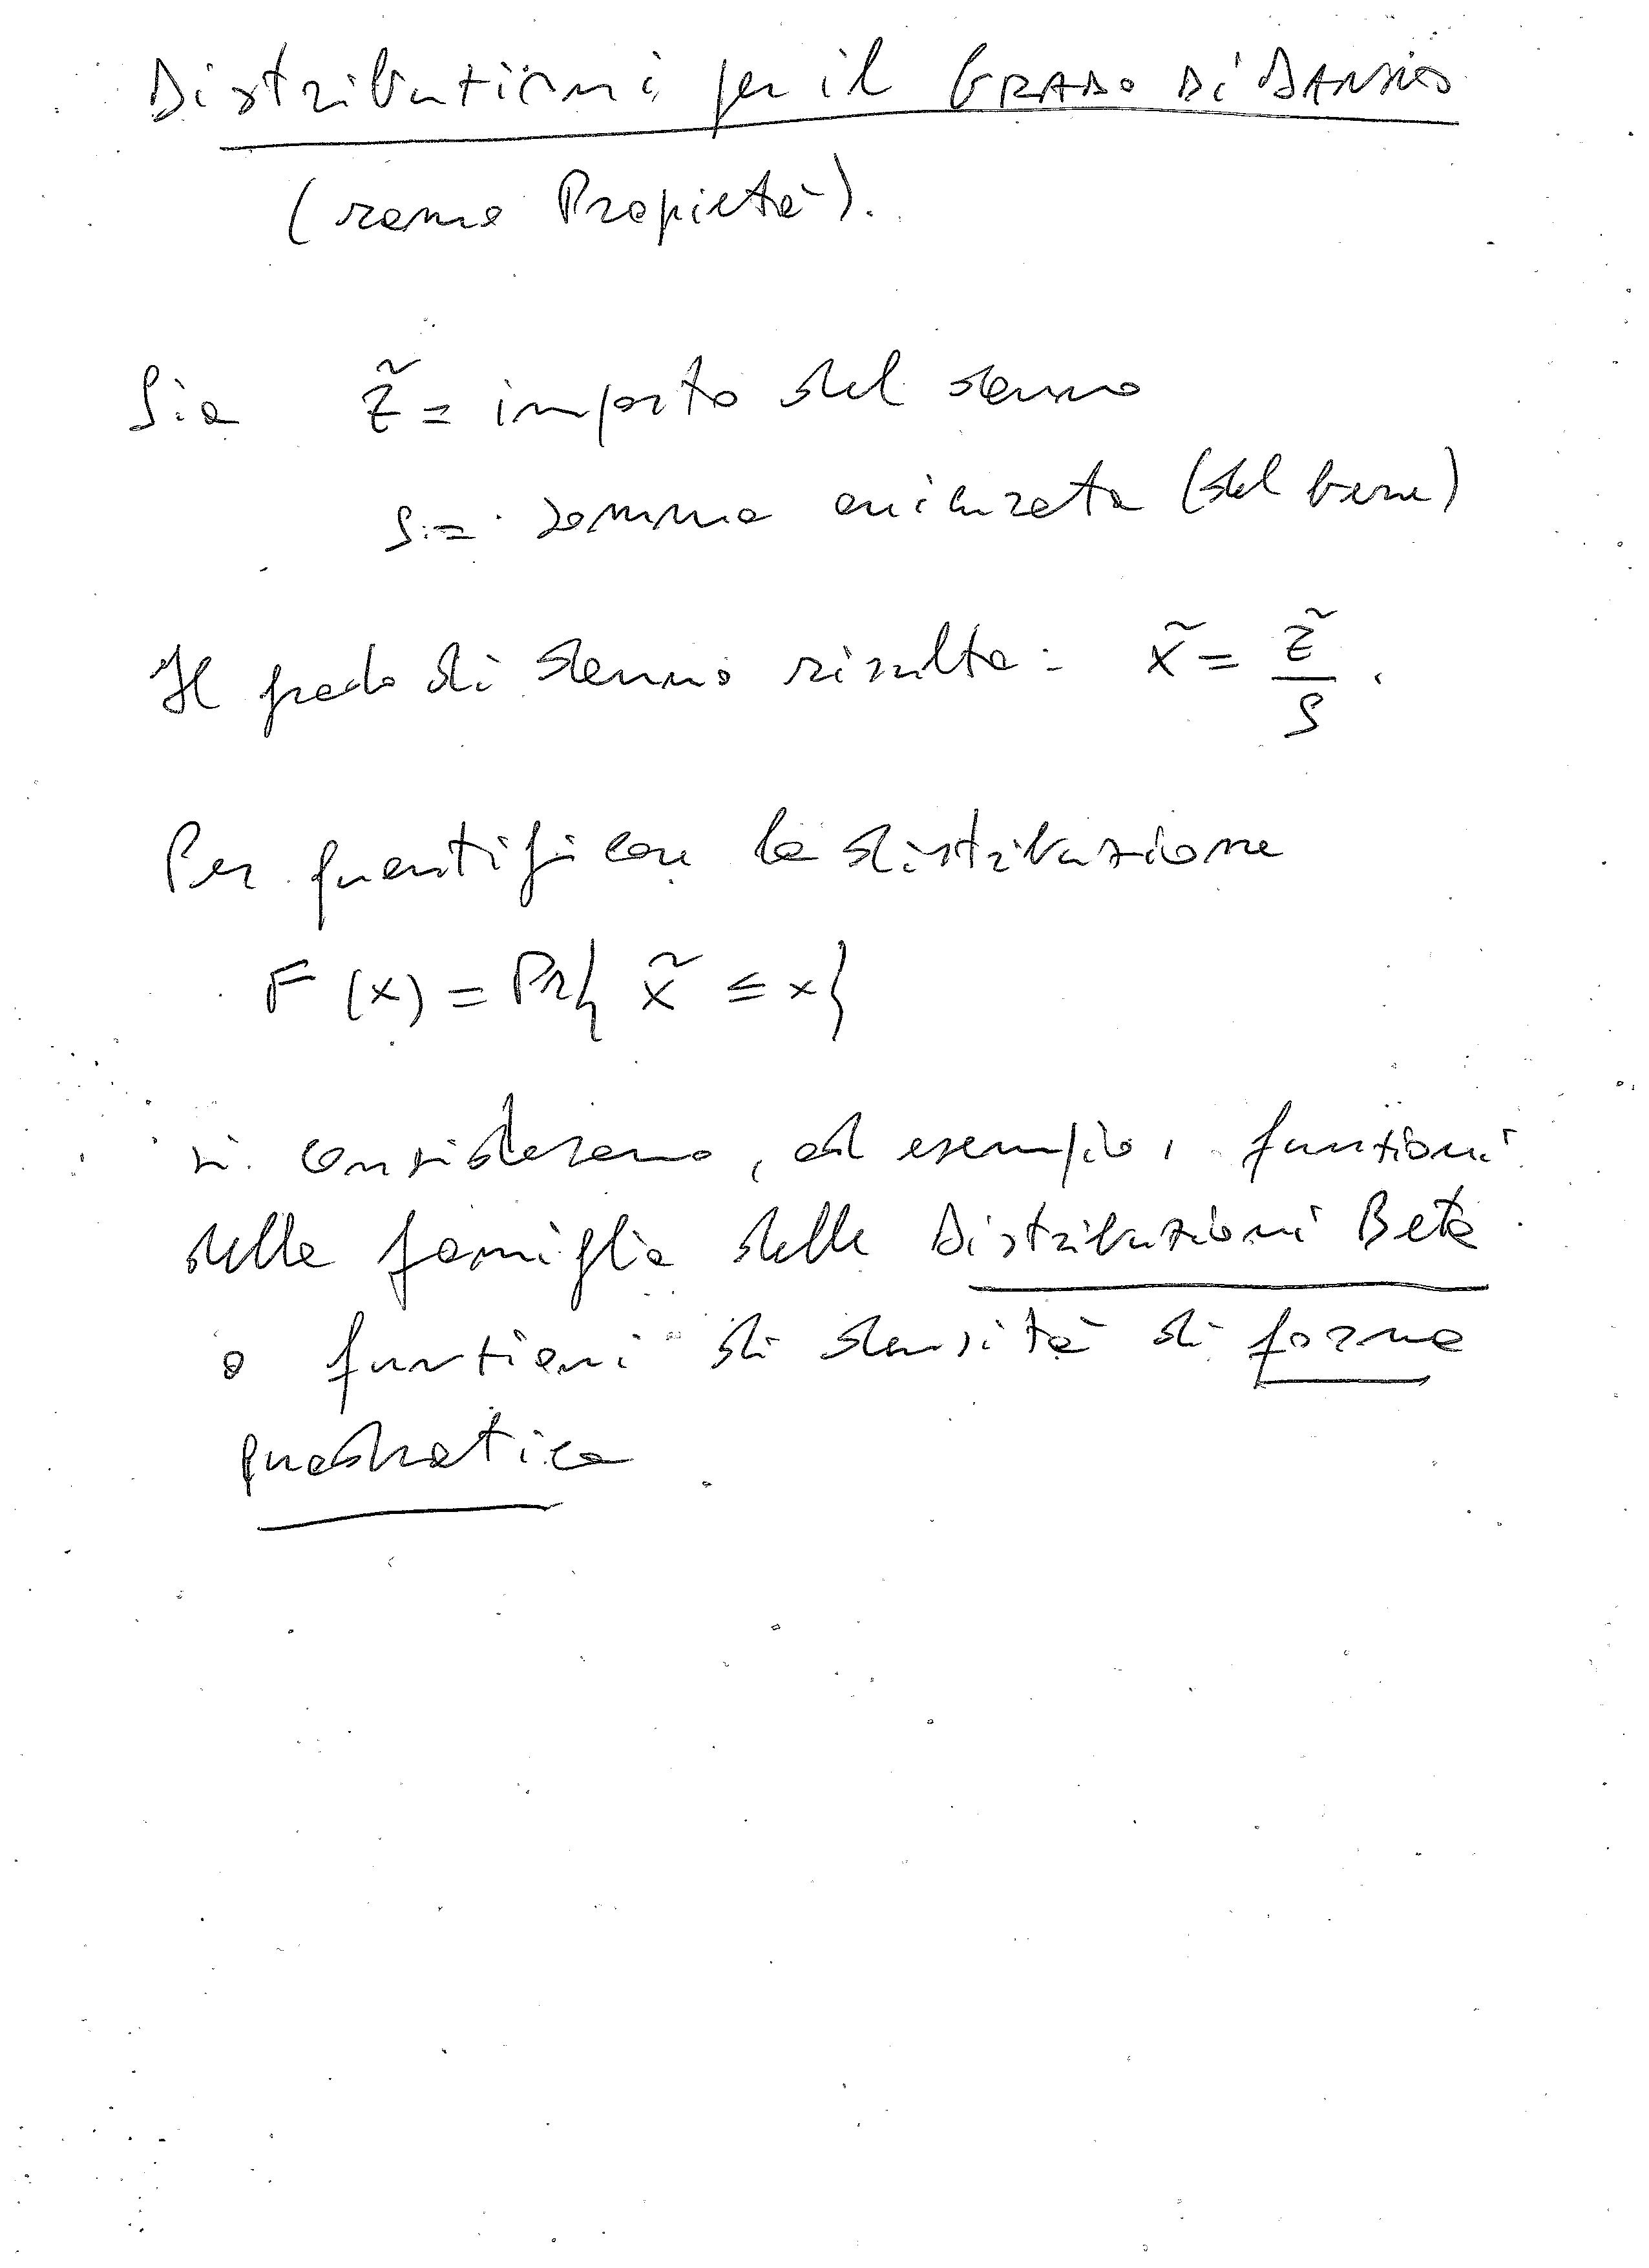 Distribuzioni per il GRADO DI DANNO
(ramo Propietà).
Sia z̃ = importo del danno
s = somma assicurata (del bene)
Il grado di danno risulta: x̃ = z̃/s.
Per quantificare la distribuzione
F(x) = Pr{ x̃ ≤ x}
si considerano, ad esempio, funzioni
della famiglia delle Distribuzioni Beta
o funzioni di densità di forma
quadratica